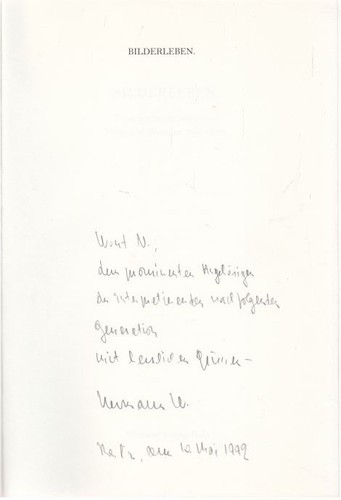 BILDERLEBEN.
Horst N.,
dem prominenten Angehörigen
der interpretierenden nachfolgenden
Generation
mit herzlichen Grüssen –
Hermann W.
den 12 Mai 1992